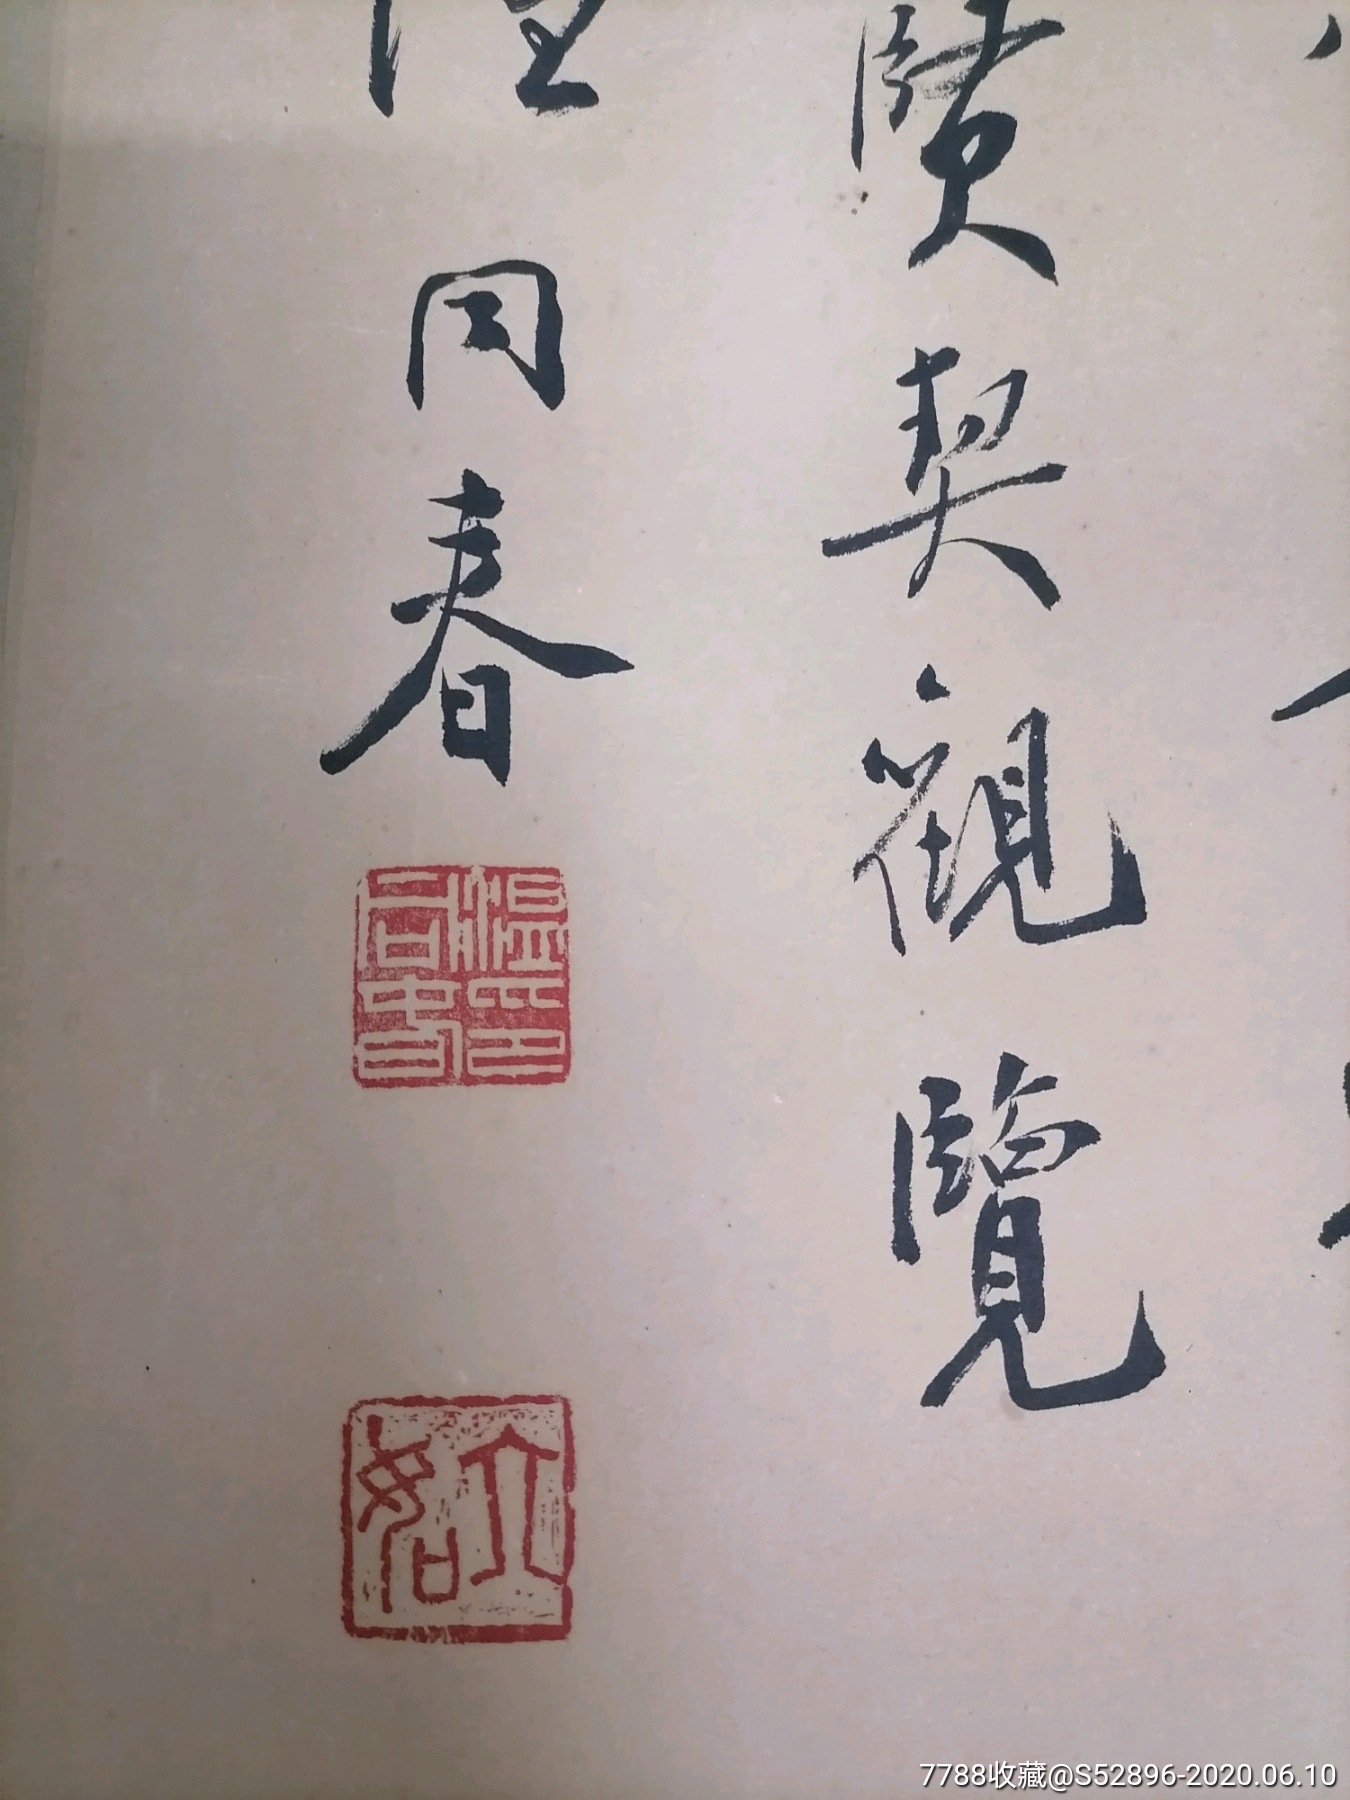 賢契觀覽
同春
溫同春印
7788收藏@S52896-2020.06.10